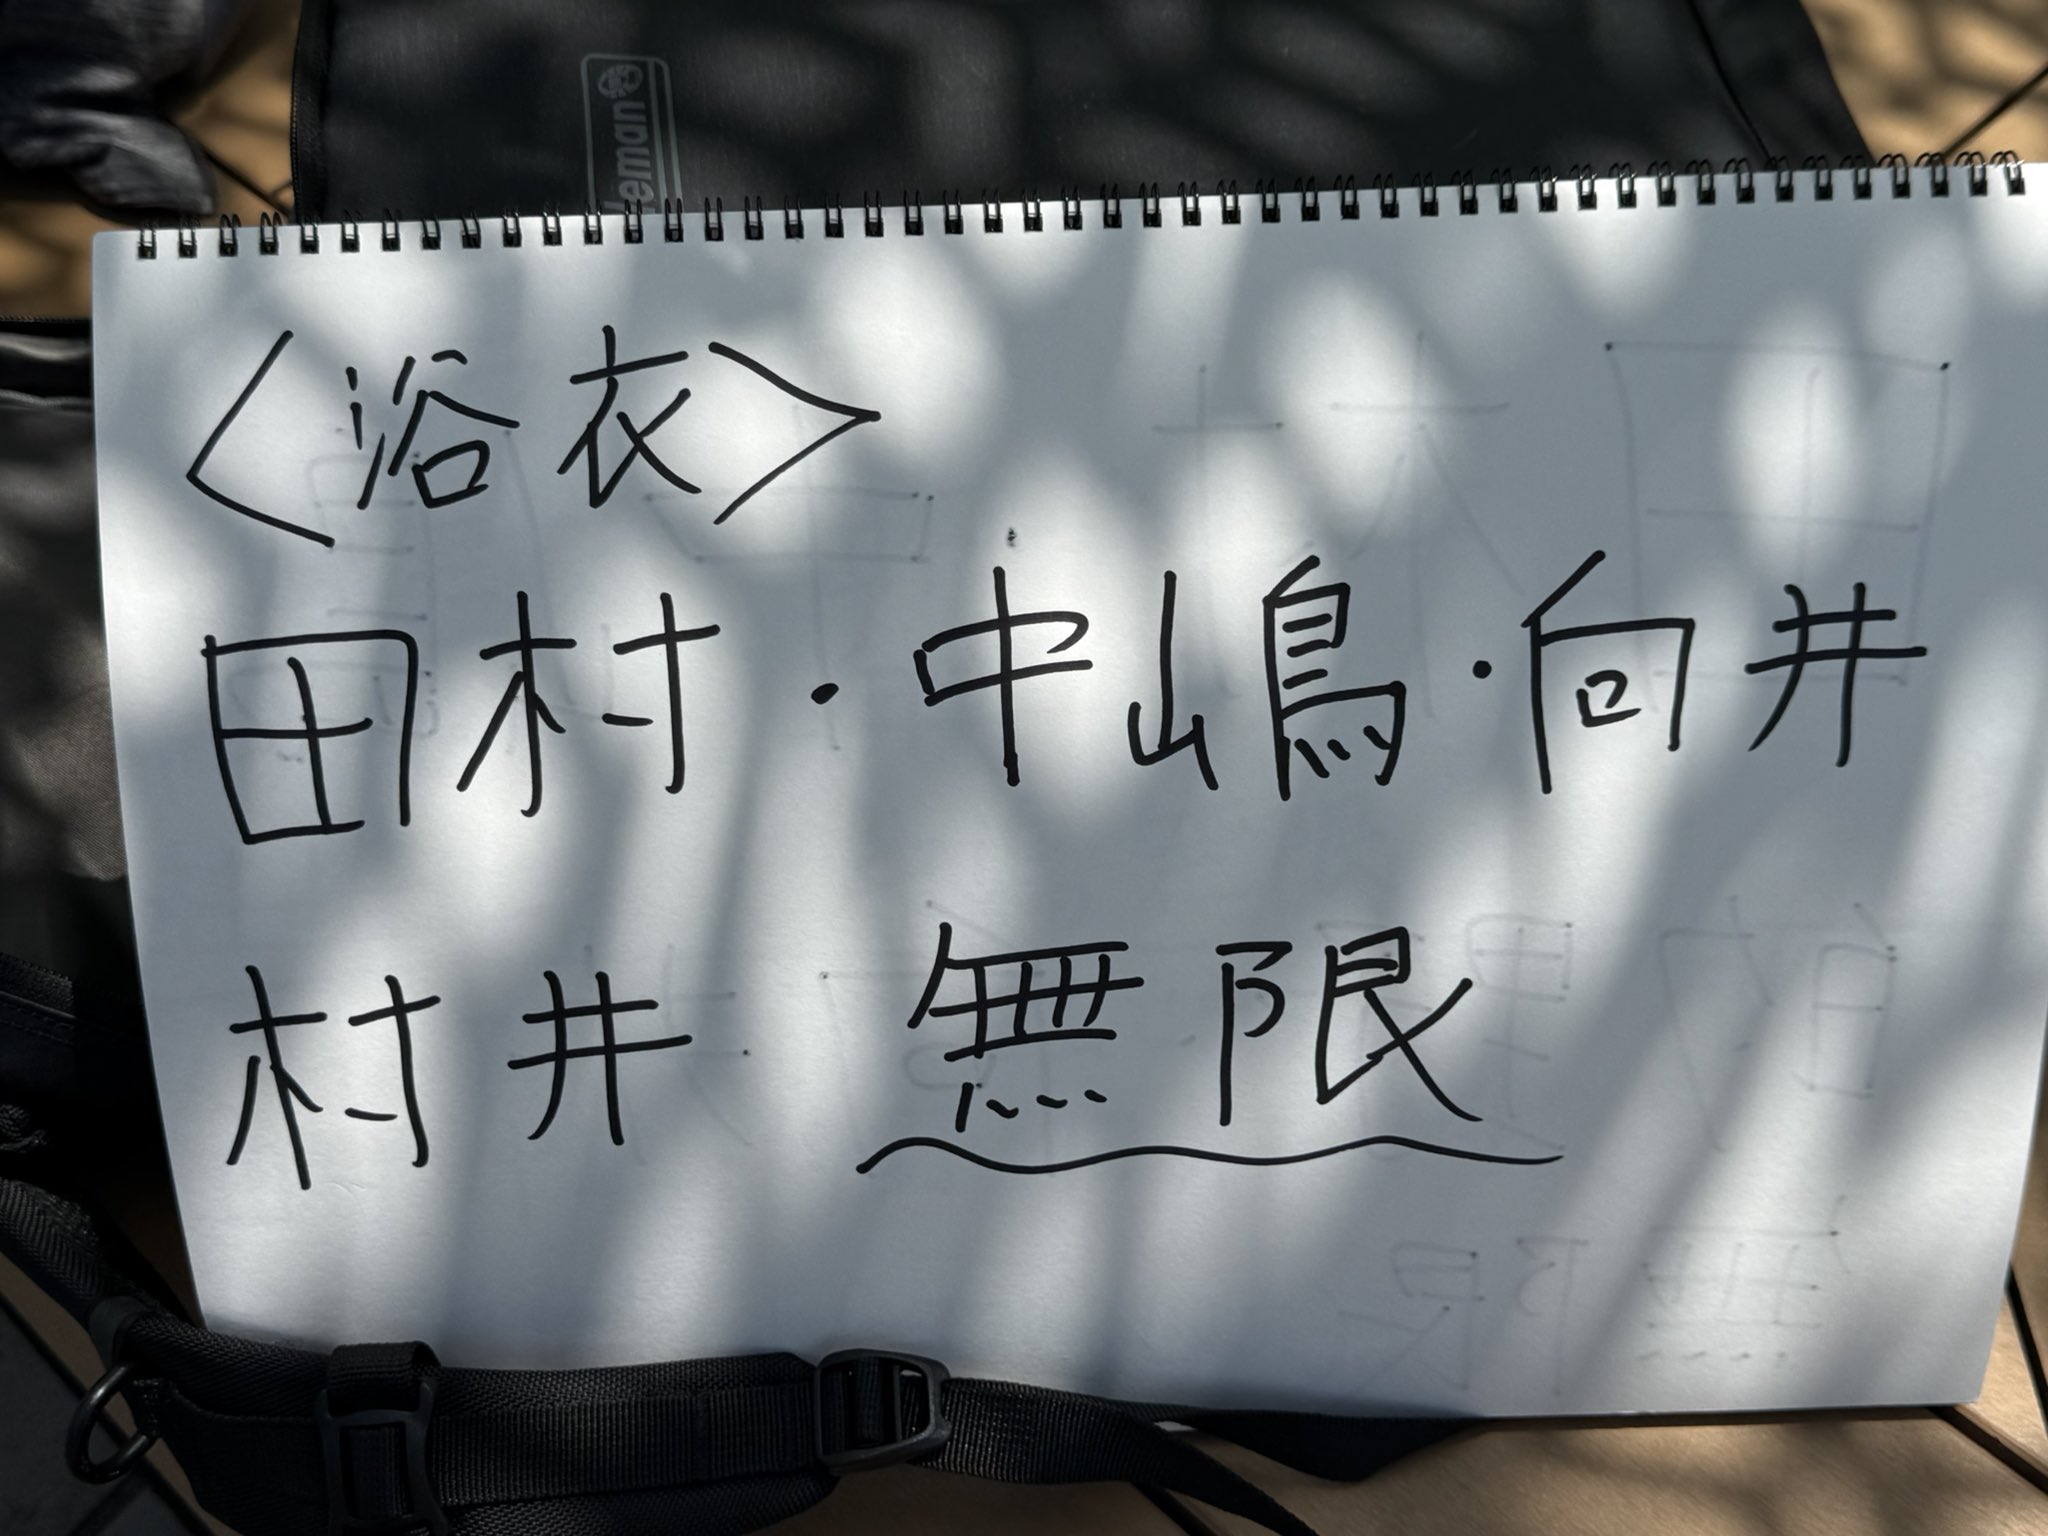 leman
〈浴衣〉
田村・中嶋・向井
村井 無限